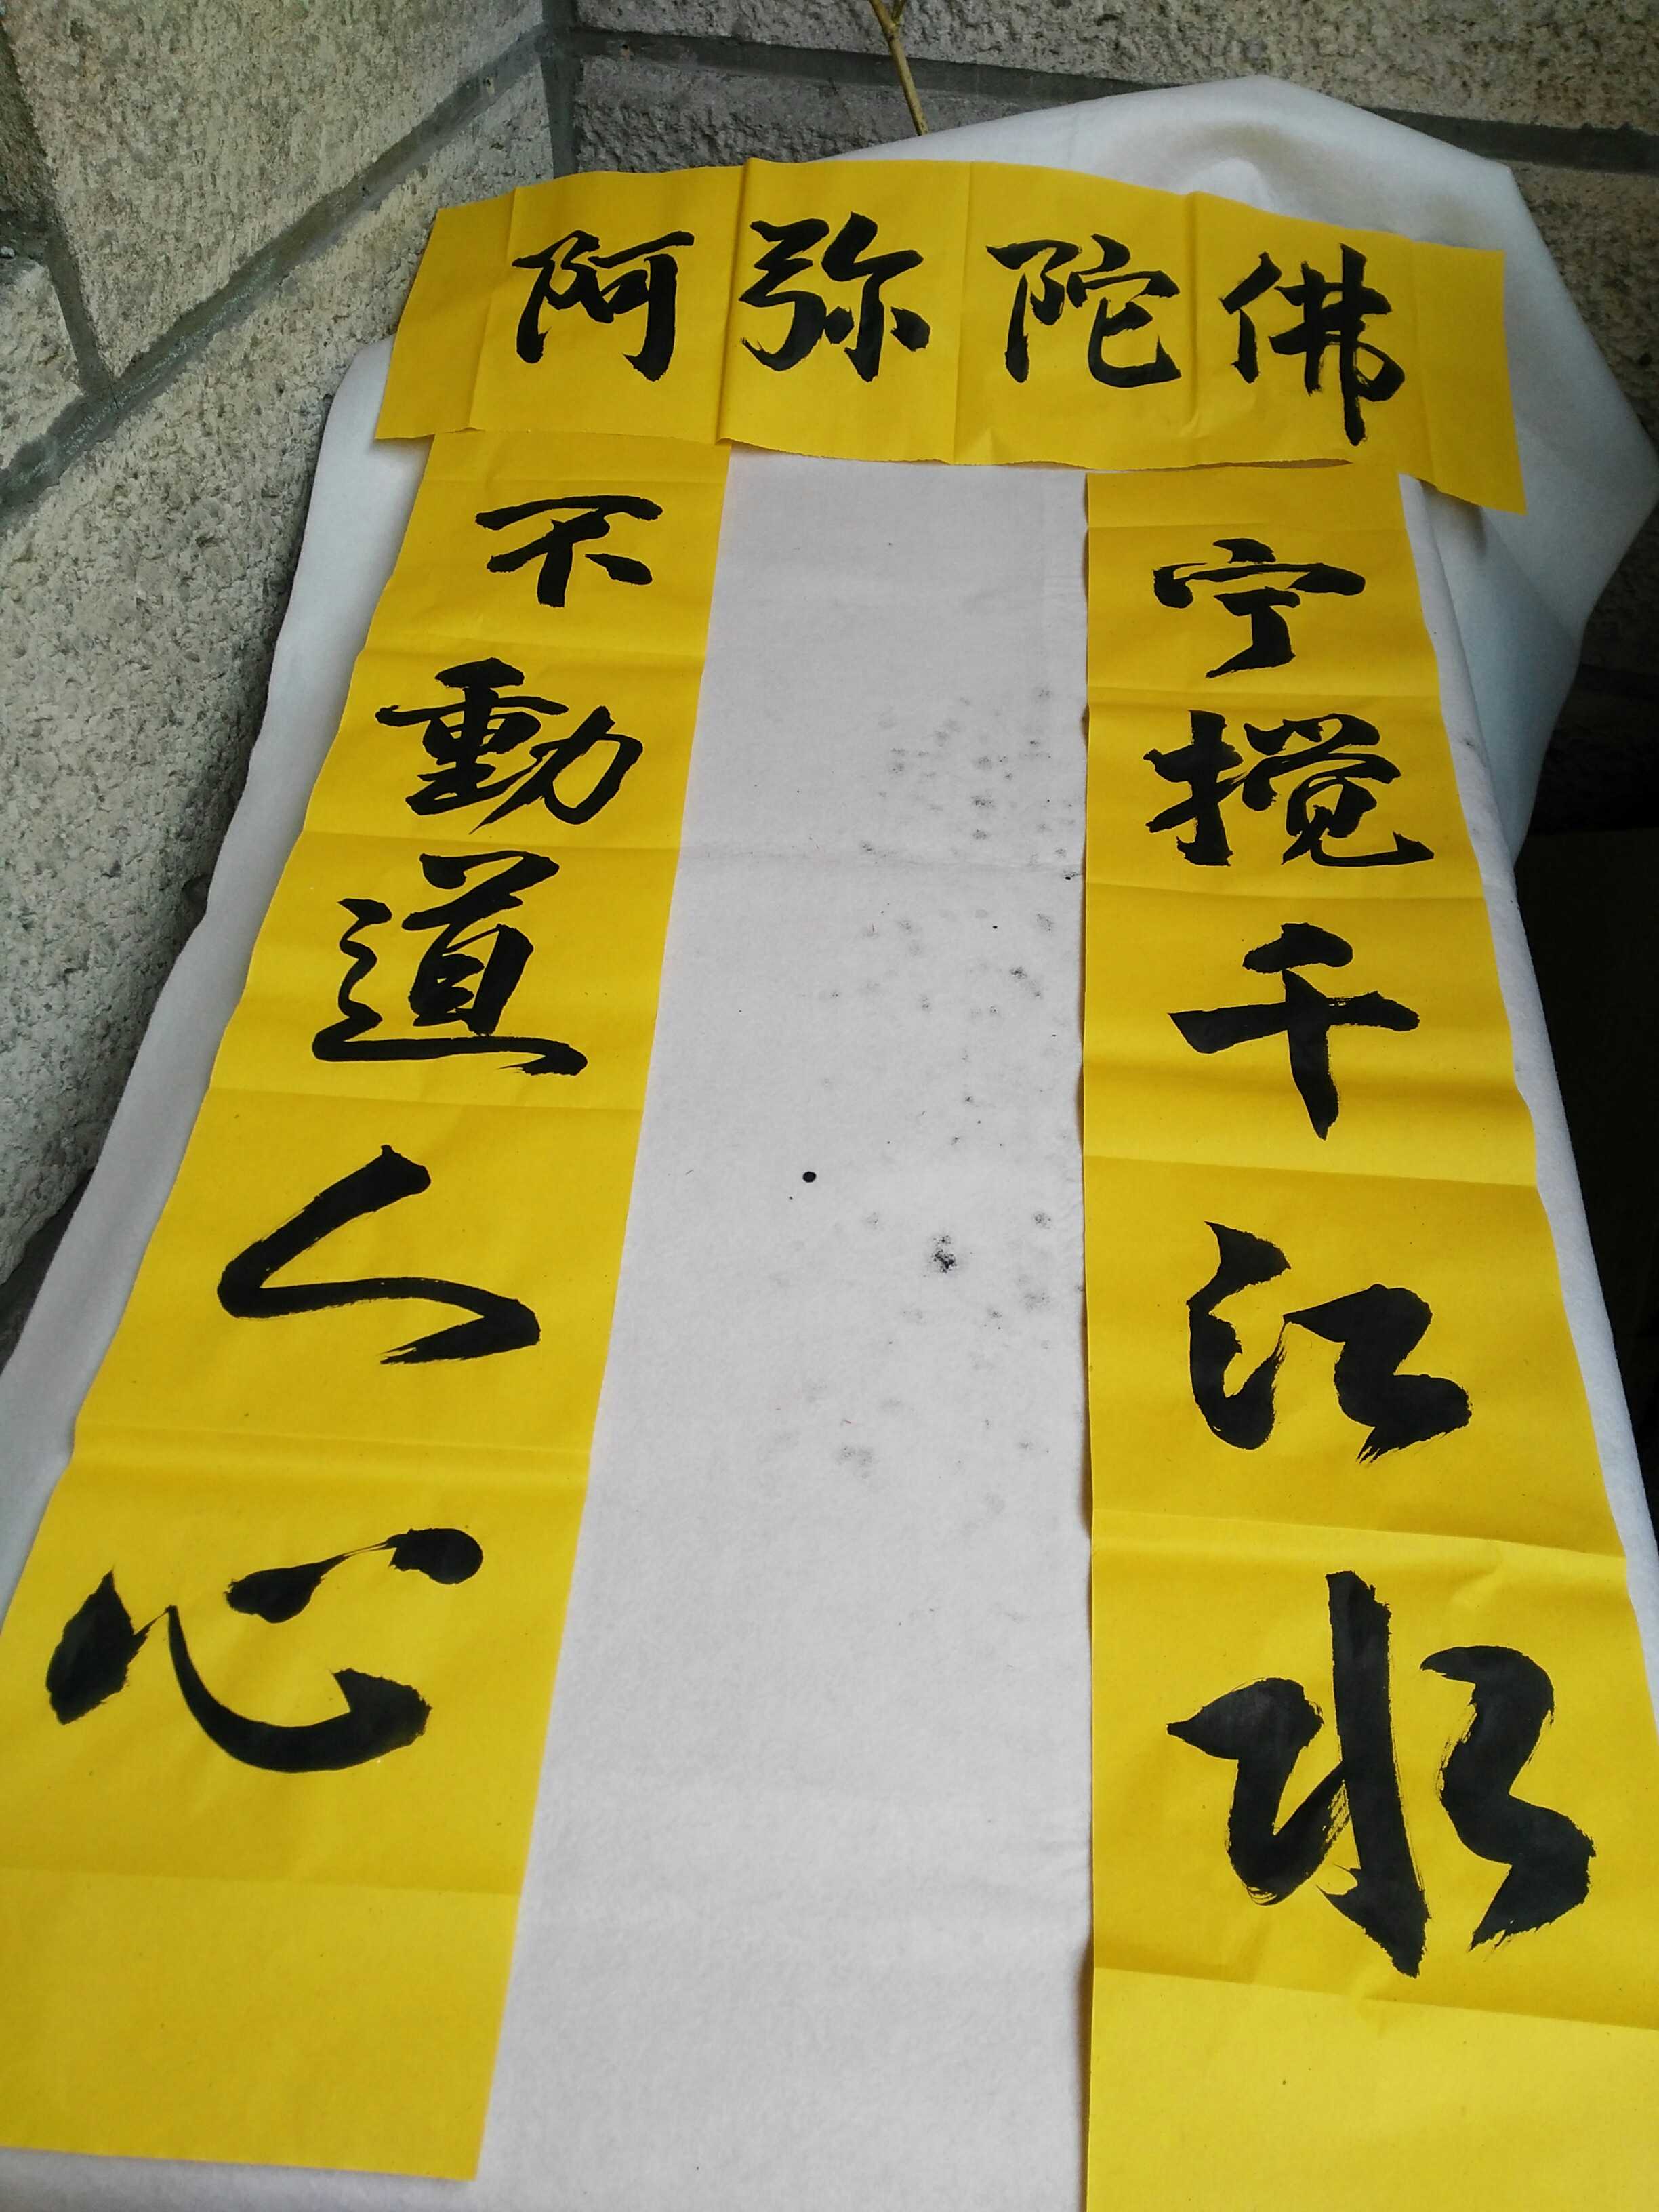 阿弥陀佛
宁搅千江水
不動道人心